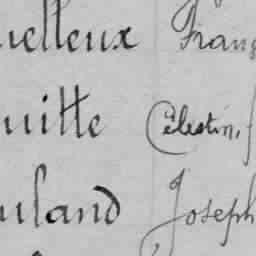 uelleux Franç
uitte Célestin,
uland Joseph